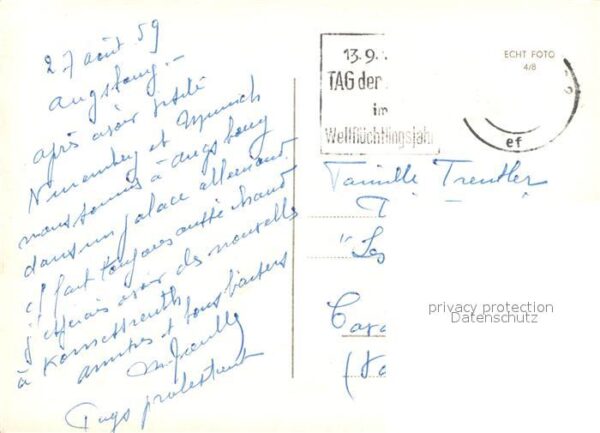 27 août 59
Augsbourg -
après avoir visité
Nuremberg et Munich
nous sommes à Augsbourg
dans un palace allemand.
il fait toujours aussi chaud
j'espère avoir des nouvelles
à Konnersreuth
amitiés et bons baisers
Pays protestant
13.9.
TAG der
im
Weltflüchtlingsjahr
ECHT FOTO
4/8
ef
Famille Trentler
"Les
Cara
privacy protection
Datenschutz